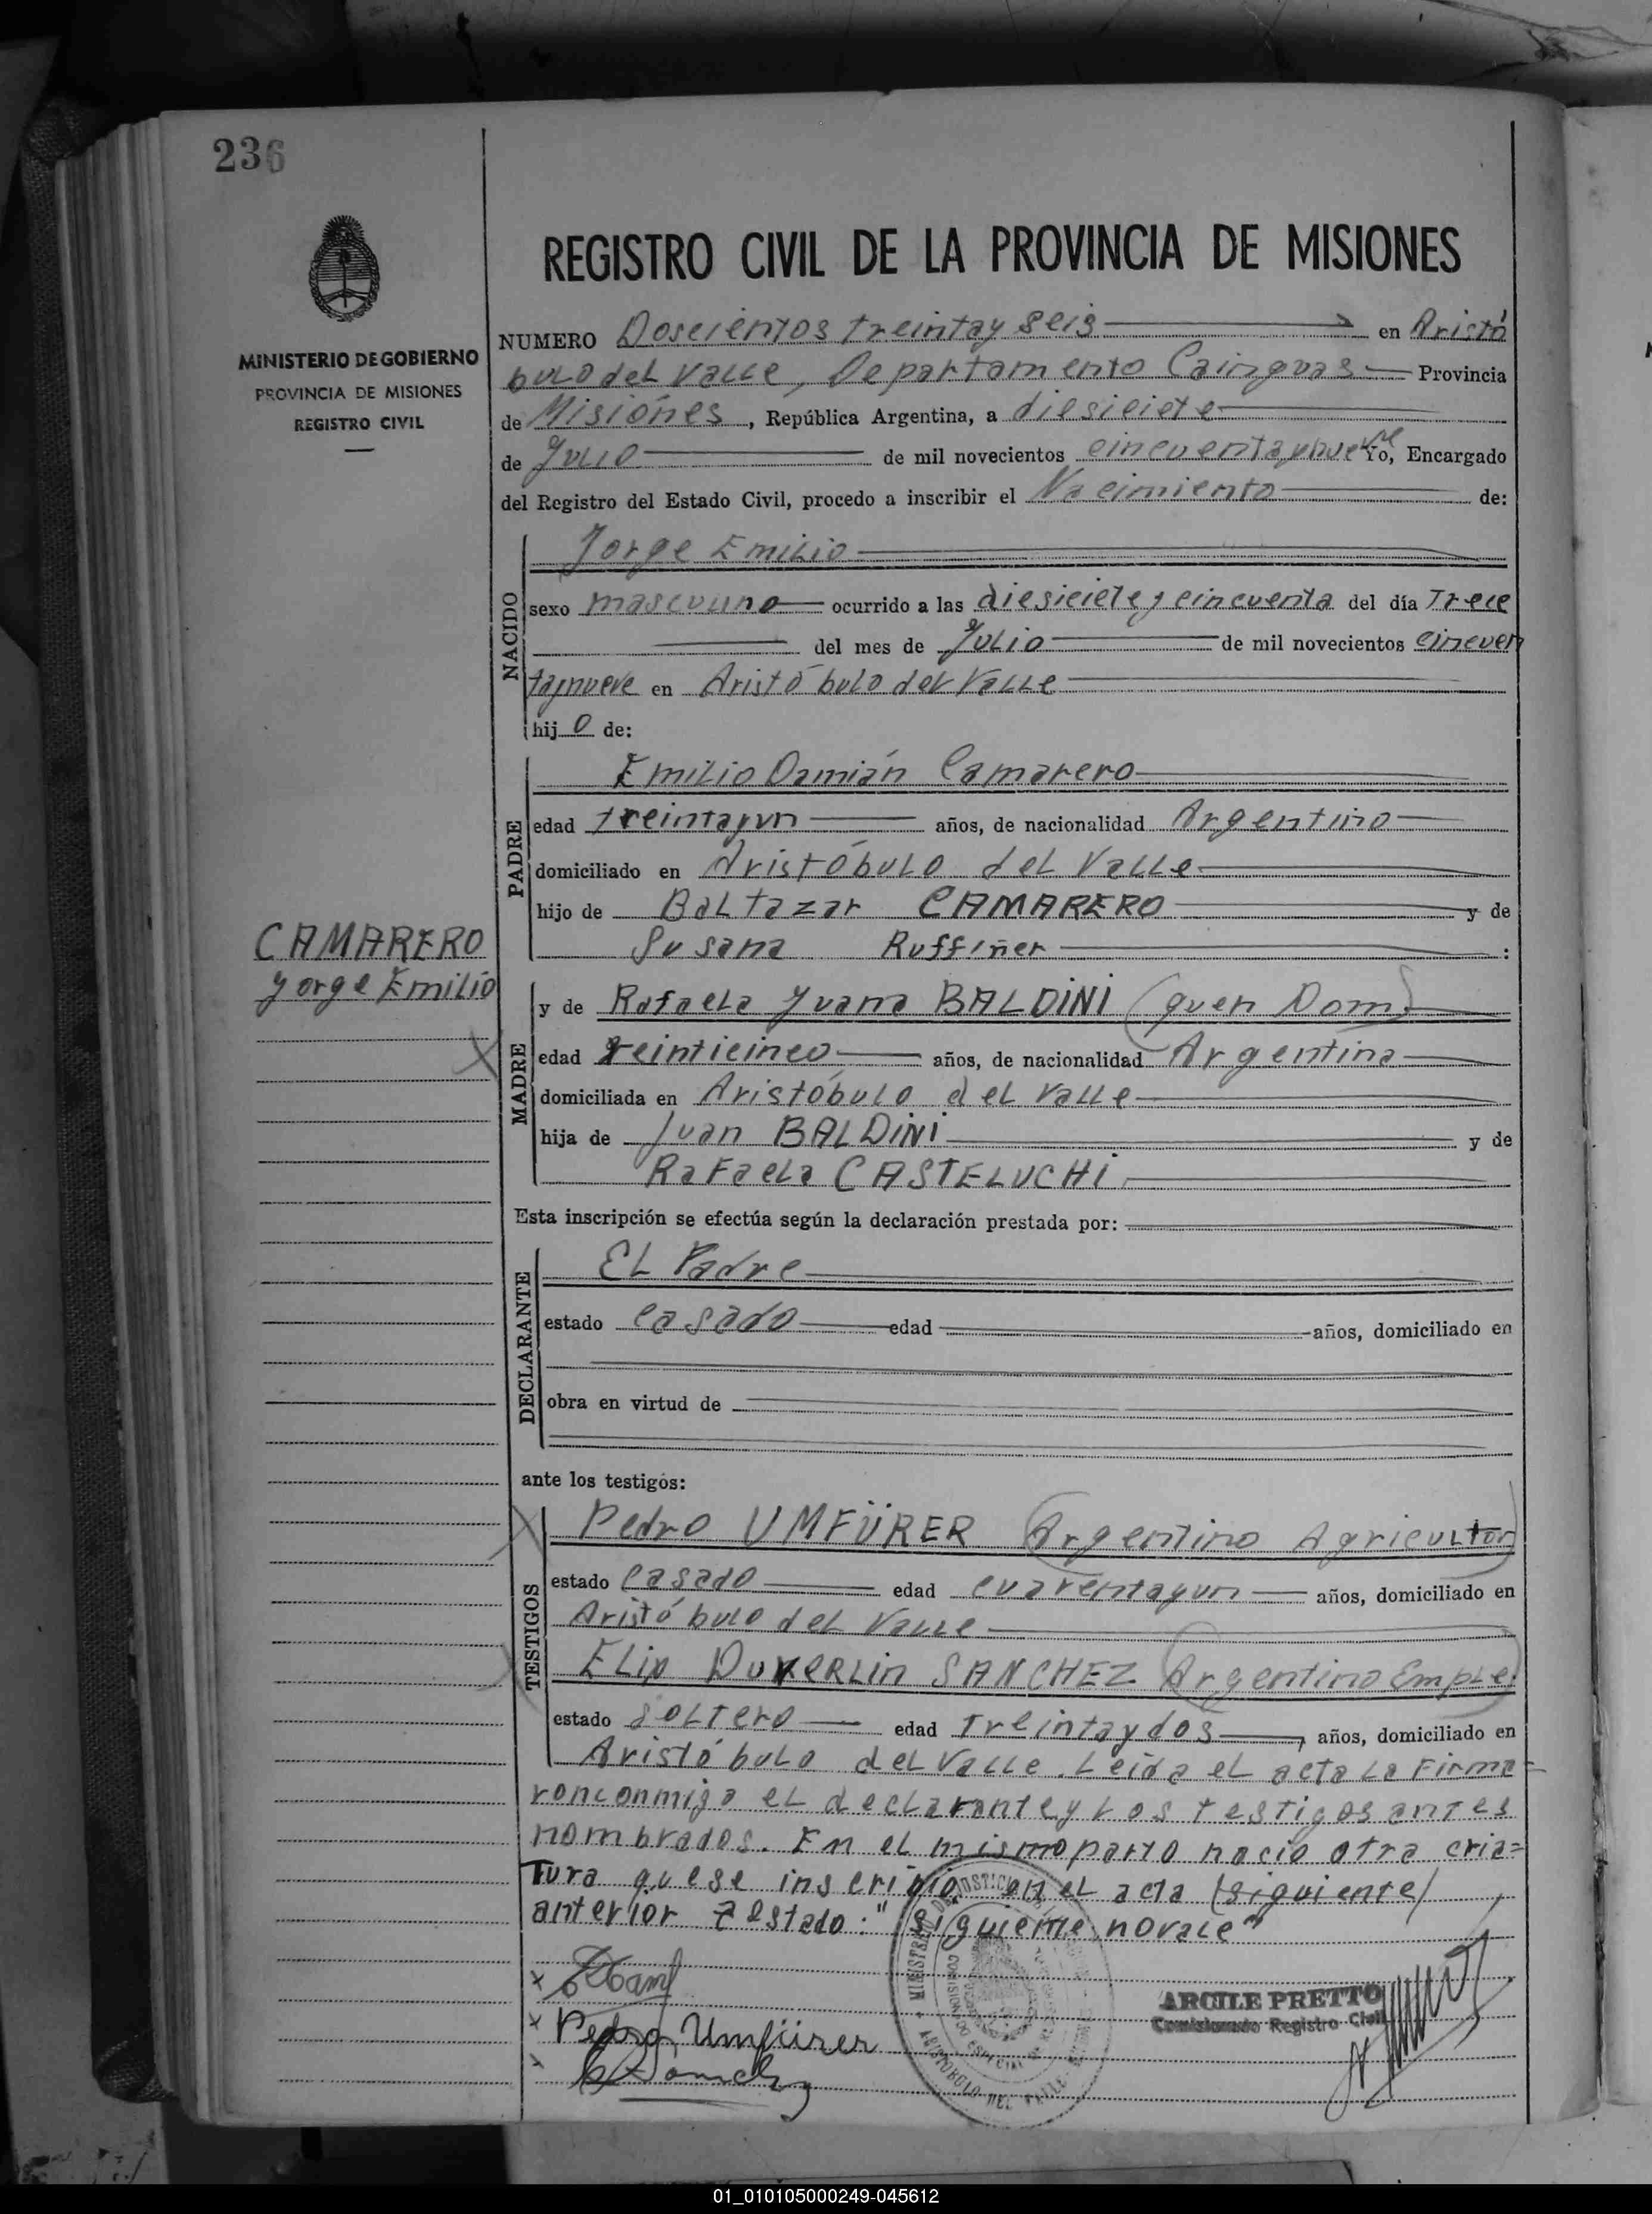 236
MINISTERIO DE GOBIERNO
PROVINCIA DE MISIONES
REGISTRO CIVIL
REGISTRO CIVIL DE LA PROVINCIA DE MISIONES
NUMERO Doscientos treintay seis en Aristó
bulo del Valle, Departamento Cainguas Provincia
de Misiónes, República Argentina, a diesiciete
de Julio de mil novecientos cincuentaynueve Yo, Encargado
del Registro del Estado Civil, procedo a inscribir el Nacimiento de:
NACIDO
Jorge Emilio
sexo masculino ocurrido a las diesiciete y cincuenta del día Trece
del mes de Julio de mil novecientos cincuen
taynueve en Aristó bulo del Valle
hij o de:
PADRE
Emilio Damián Camarero
edad treintayun años, de nacionalidad Argentino
domiciliado en Aristóbulo del Valle
hijo de Baltazar CAMARERO y de
Susana Ruffiñer :
CAMARERO
Jorge Emilio
MADRE
y de Rafaela Juana BALDINI (quen Dom)
edad veinticinco años, de nacionalidad Argentina
domiciliada en Aristóbulo del Valle
hija de Juan BALDINI y de
Rafaela CASTELUCHI
Esta inscripción se efectúa según la declaración prestada por:
DECLARANTE
EL Padre
estado casado edad años, domiciliado en
obra en virtud de
ante los testigos:
TESTIGOS
Pedro UMFÜRER (Argentino Agricultor)
estado casado edad cuarentayun años, domiciliado en
Aristó bulo del Valle
SANCHEZ (Argentino Emple)
estado soltero edad Treintaydos, años, domiciliado en
Aristó bulo del Valle. Leída el acta la Firma=
ronconmigo el declarante y los testigos antes
nombrados. En el mismo parto nació otra cria=
Tura quese inscribió en el acta (siguiente),
anterior Testado: "siguiente novale"
Pedro Umfürer
ARGILE PRETTO
Comisionado Registro Civil
ARISTOBOLO DEL VALLE
01_010105000249-045612